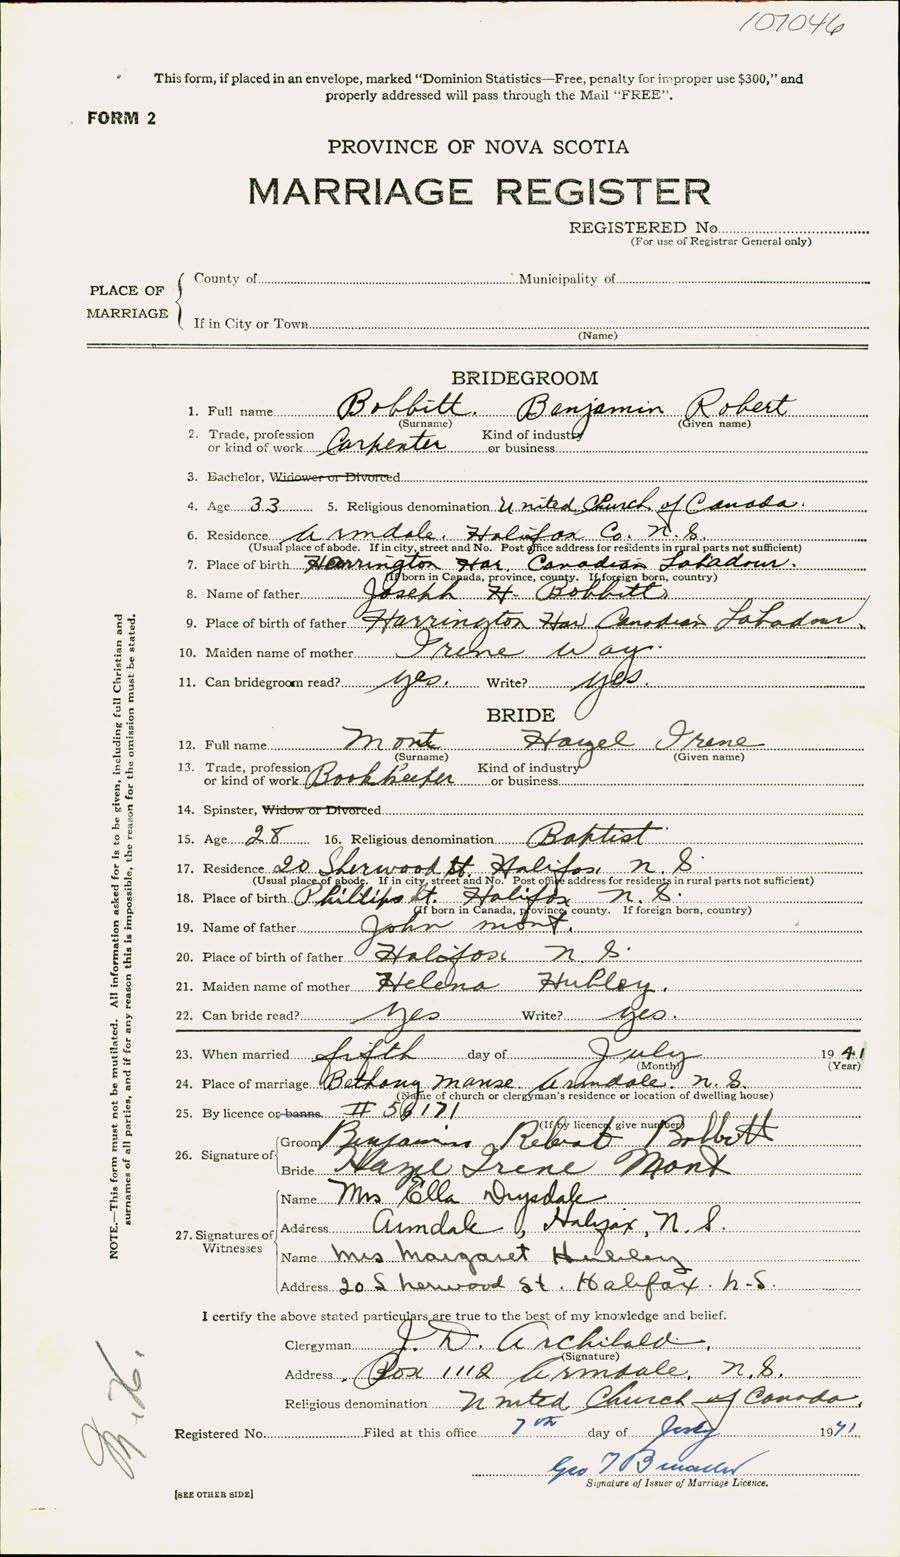 107046
This form, if placed in an envelope, marked "Dominion Statistics—Free, penalty for improper use $300," and
properly addressed will pass through the Mail "FREE".
FORM 2
PROVINCE OF NOVA SCOTIA
MARRIAGE REGISTER
REGISTERED No.
(For use of Registrar General only)
PLACE OF MARRIAGE
County of Municipality of
If in City or Town
(Name)
BRIDEGROOM
1. Full name Bobbitt. Benjamin Robert
(Surname) (Given name)
2. Trade, profession or kind of work Carpenter Kind of industry or business
3. Bachelor, Widower or Divorced
4. Age 33 5. Religious denomination United Church of Canada.
6. Residence Armdale. Halifax Co. N.S.
(Usual place of abode. If in city, street and No. Post office address for residents in rural parts not sufficient)
7. Place of birth Harrington Har. Canadian Labadour.
(If born in Canada, province, county. If foreign born, country)
8. Name of father Joseph H. Bobbitt
9. Place of birth of father Harrington Har Canadian Labadour.
10. Maiden name of mother Irene Way.
11. Can bridegroom read? yes. Write? yes.
BRIDE
12. Full name Mont Hazel Irene
(Surname) (Given name)
13. Trade, profession or kind of work Bookkeeper Kind of industry or business
14. Spinster, Widow or Divorced
15. Age 28 16. Religious denomination Baptist
17. Residence 20 Sherwood St. Halifax N.S.
(Usual place of abode. If in city, street and No. Post office address for residents in rural parts not sufficient)
18. Place of birth Phillips St. Halifax N.S.
(If born in Canada, province, county. If foreign born, country)
19. Name of father John Mont.
20. Place of birth of father Halifax N.S.
21. Maiden name of mother Helena Hubley.
22. Can bride read? Yes Write? yes.
23. When married fifth day of July 1941
(Month) (Year)
24. Place of marriage Bethany Manse Armdale. N.S.
(Name of church or clergyman's residence or location of dwelling house)
25. By licence or banns. # 56171
(If by licence, give number)
26. Signature of
Groom Benjamin Robert Bobbitt
Bride Hazel Irene Mont
27. Signatures of Witnesses
Name Mrs Ella Drysdale
Address Armdale, Halifax, N.S.
Name Mrs Margaret Hubley
Address 20 Sherwood St. Halifax. N.S.
I certify the above stated particulars are true to the best of my knowledge and belief.
Clergyman J. D. Archibald.
(Signature)
Address. Box 1112 Armdale. N.S.
Religious denomination United Church of Canada.
Registered No. Filed at this office 7th day of July 1941
Geo
Signature of Issuer of Marriage Licence.
[SEE OTHER SIDE]
NOTE.—This form must not be mutilated. All information asked for is to be given, including full Christian and
surnames of all parties, and if for any reason this is impossible, the reason for the omission must be stated.